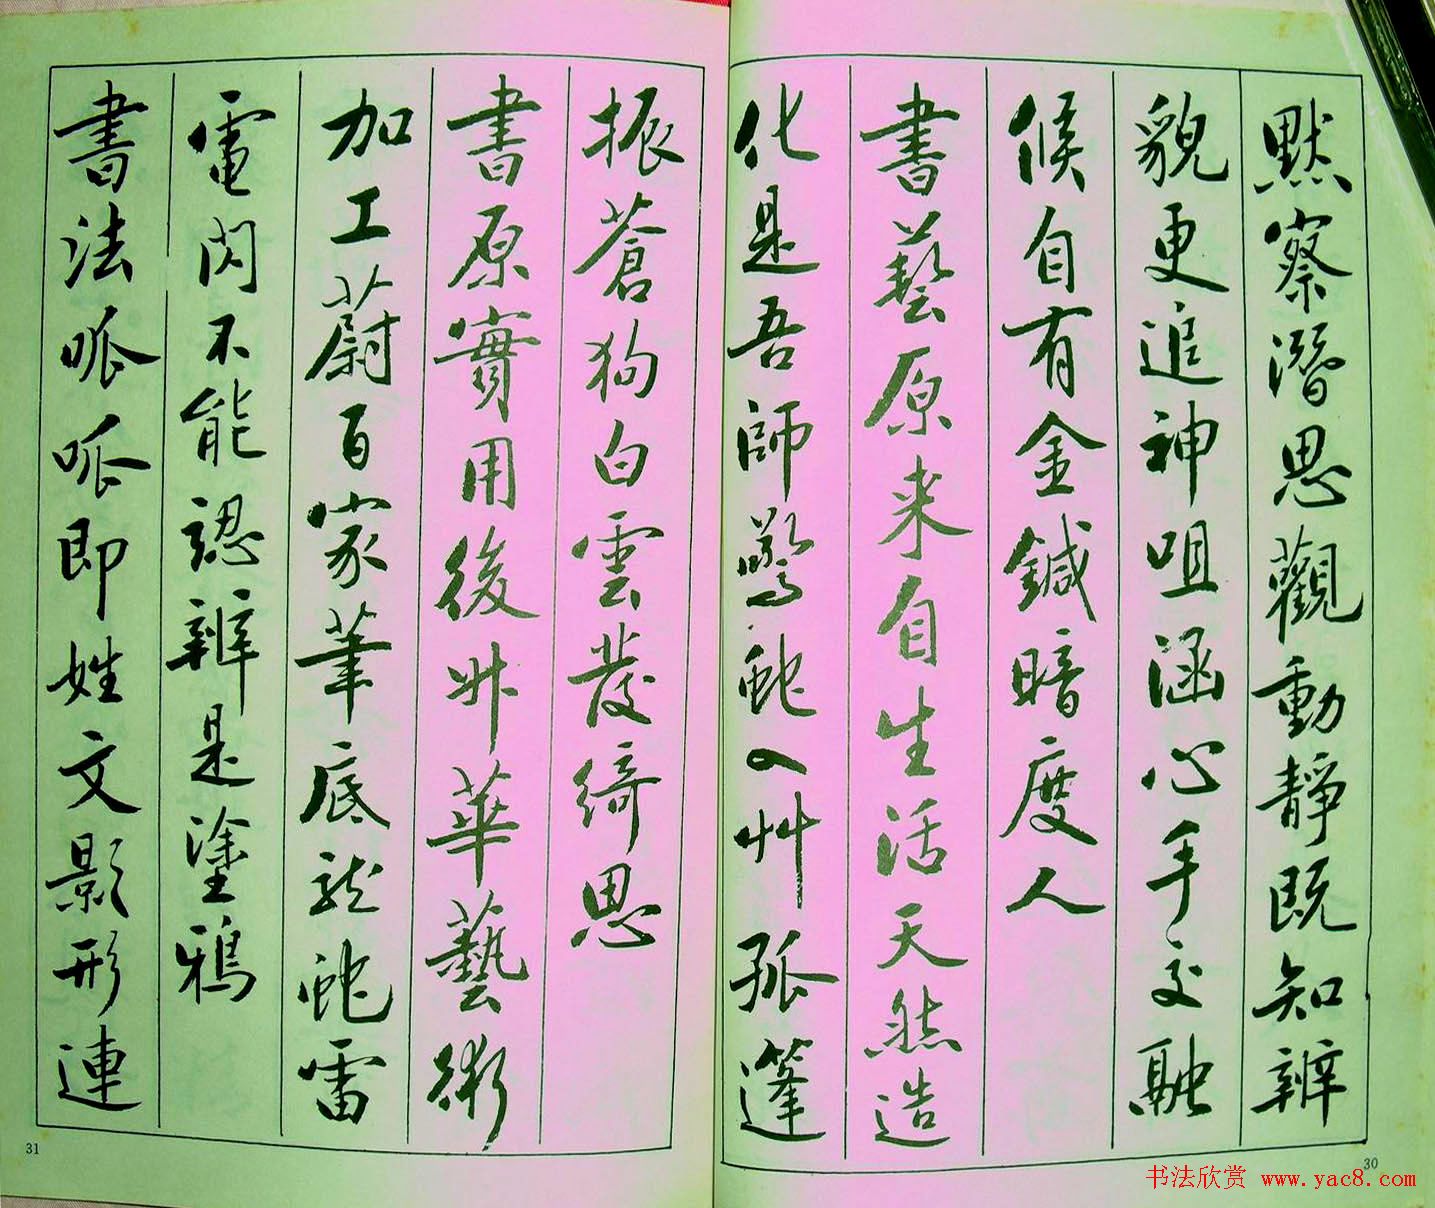 默察潛思觀動靜既知辨
貌更追神咀涵心手交融
候自有金鍼暗度人
書藝原來自生活天然造
化是吾師驚蛇入艸孤篷
振蒼狗白雲發綺思
書原實用後升華藝術
加工蔚百家筆底龍蛇雷
電閃不能認辨是塗鴉
書法呱呱即姓文影形連
31
30
书法欣赏 www.yac8.com